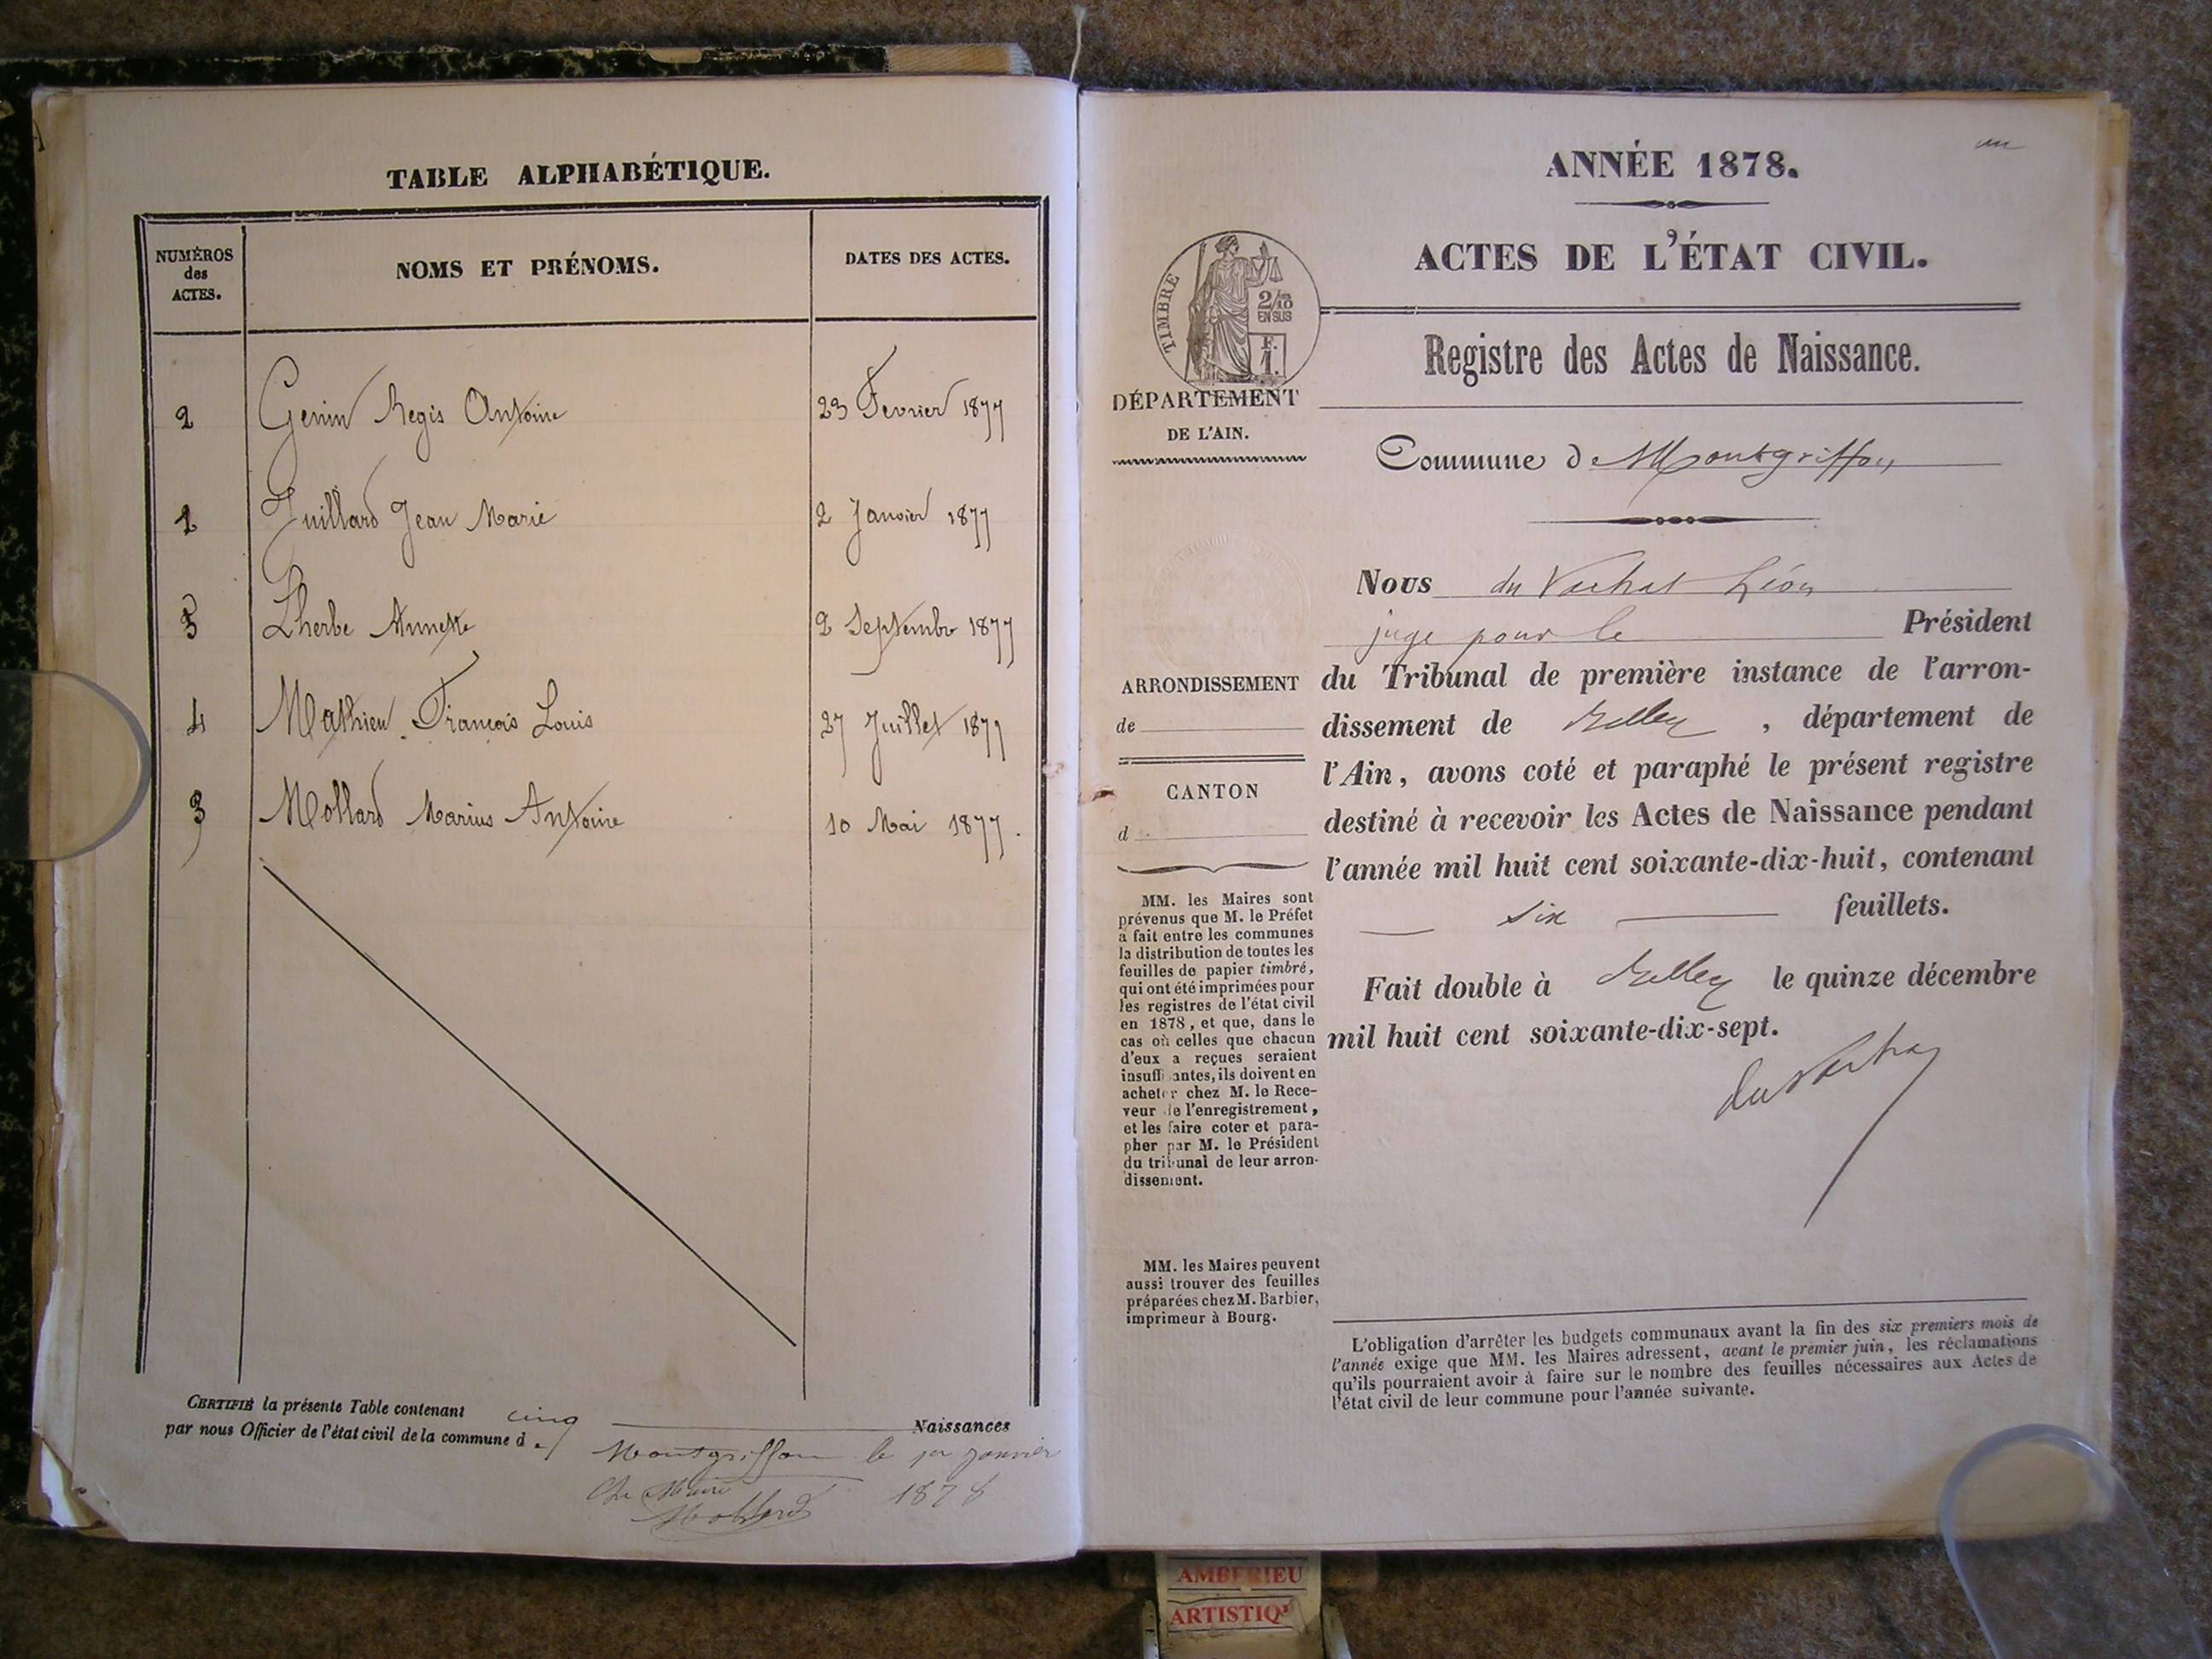 TABLE ALPHABÉTIQUE.
NUMÉROS
des
ACTES.
NOMS ET PRÉNOMS.
DATES DES ACTES.
2 Genin Regis Antoine 23 Fevrier 1877
1 Juillard Jean Marie 2 Janvier 1877
5 Lherbe Annette 2 Septembre 1877
4 Mathieu François Louis 27 Juillet 1877
3 Mollard Marius Antoine 10 Mai 1877.
CERTIFIÉ la présente Table contenant cinq Naissances
par nous Officier de l'état civil de la commune de
Montgriffon le 1er janvier
Le Maire 1878
Mollard
un
ANNÉE 1878.
ACTES DE L'ÉTAT CIVIL.
TIMBRE
2/10
EN SUS
F.
1.
Registre des Actes de Naissance.
DÉPARTEMENT
DE L'AIN.
Commune de Montgriffon
Nous du Vachat Léon
juge pour le Président
du Tribunal de première instance de l'arron-
dissement de Belley, département de
l'Ain, avons coté et paraphé le présent registre
destiné à recevoir les Actes de Naissance pendant
l'année mil huit cent soixante-dix-huit, contenant
six feuillets.
Fait double à Belley le quinze décembre
mil huit cent soixante-dix-sept.
du Vachat
ARRONDISSEMENT
de
CANTON
d
MM. les Maires sont
prévenus que M. le Préfet
a fait entre les communes
la distribution de toutes les
feuilles de papier timbré,
qui ont été imprimées pour
les registres de l'état civil
en 1878, et que, dans le
cas où celles que chacun
d'eux a reçues seraient
insuffisantes, ils doivent en
acheter chez M. le Rece-
veur de l'enregistrement,
et les faire coter et para-
pher par M. le Président
du tribunal de leur arron-
dissement.
MM. les Maires peuvent
aussi trouver des feuilles
préparées chez M. Barbier,
imprimeur à Bourg.
L'obligation d'arrêter les budgets communaux avant la fin des six premiers mois de
l'année exige que MM. les Maires adressent, avant le premier juin, les réclamations
qu'ils pourraient avoir à faire sur le nombre des feuilles nécessaires aux Actes de
l'état civil de leur commune pour l'année suivante.
AMBERIEU
ARTISTIQ